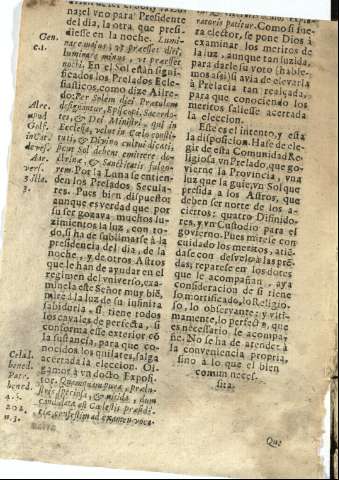 najel vno para Presidente
del dia, la otra que presi-
diesse en la noche. Lumi-
nare maius, vt præesset diei,
luminare minus, vt præesset
nocti. En el Sol estàn signi-
ficados los Prelados Ecle-
siasticos, como dize Alre-
do: Per Solem diei Prælatum
designantur, Episcopi, Sacerdo-
tes, & Dei Ministri, qui in
Ecclesia, velut in Cœlo consti-
tuti, & Divino cultui dicati,
Sol debent emitere do-
ctrinæ, & Sanctitatis fulgo-
rem. Por la Luna se entien-
den los Prelados Secula-
res. Pues bien dispuestos
aunque es verdad que por
su ser gozava muchos lu-
zimientos la luz, con to-
do, si ha de sublimarse à la
presidencia del dia, de la
noche, y de otros Astros
que le han de ayudar en el
regimen del vniverso, exa-
minela este Señor muy biē,
mire à la luz de su infinita
sabiduria, si tiene todos
los cavales de perfecta, si
conforma este exterior cō
la sustancia, para que co-
nocidos los quilates, salga
acertada la eleccion. Oi-
gamos à vn docto Exposi-
tor. Quamquam pura, prædu-
speciosa, & nitida, dum
candidata est Cœlestis præsidē-
tiæ, confestim ad examen voca-
Gen.
c. 1.
Alre.
apud
Golf.
in
ver.
3.
Celal.
bened.
Patr.
bened.
202.
n. 3.
ratoris patitur. Como si fue-
ra elector, se pone Dios à
examinar los meritos de
la luz, aunque tan luzida,
para darle su voto (hable-
mos assi) si avia de elevarla
à Prelacia tan realçada,
para que conociendo los
meritos saliesse acertada
la eleccion.
Este es el intento, y esta
la disposicion. Hase de ele-
gir de esta Comunidad Re-
ligiosa vn Prelado, que go-
vierne la Provincia, vna
luz que la guie, vn Sol que
presida à los Astros, que
deben ser norte de los a-
ciertos: quatro Difinido-
res, y vn Custodio para el
govierno. Pues mirese con
cuidado los meritos, atiē-
dase con desvelo à las prē-
das; reparese en los dotes
que le acompañan, aya
consideracion de si tiene
lo mortificado, lo Religio-
so, lo observante; y vlti-
mamente, lo perfecto, que
es necessario, le acompa-
ñe. No se ha de atender à
la conveniencia propria,
sino à lo que el bien
comun neces-
sita.
Que